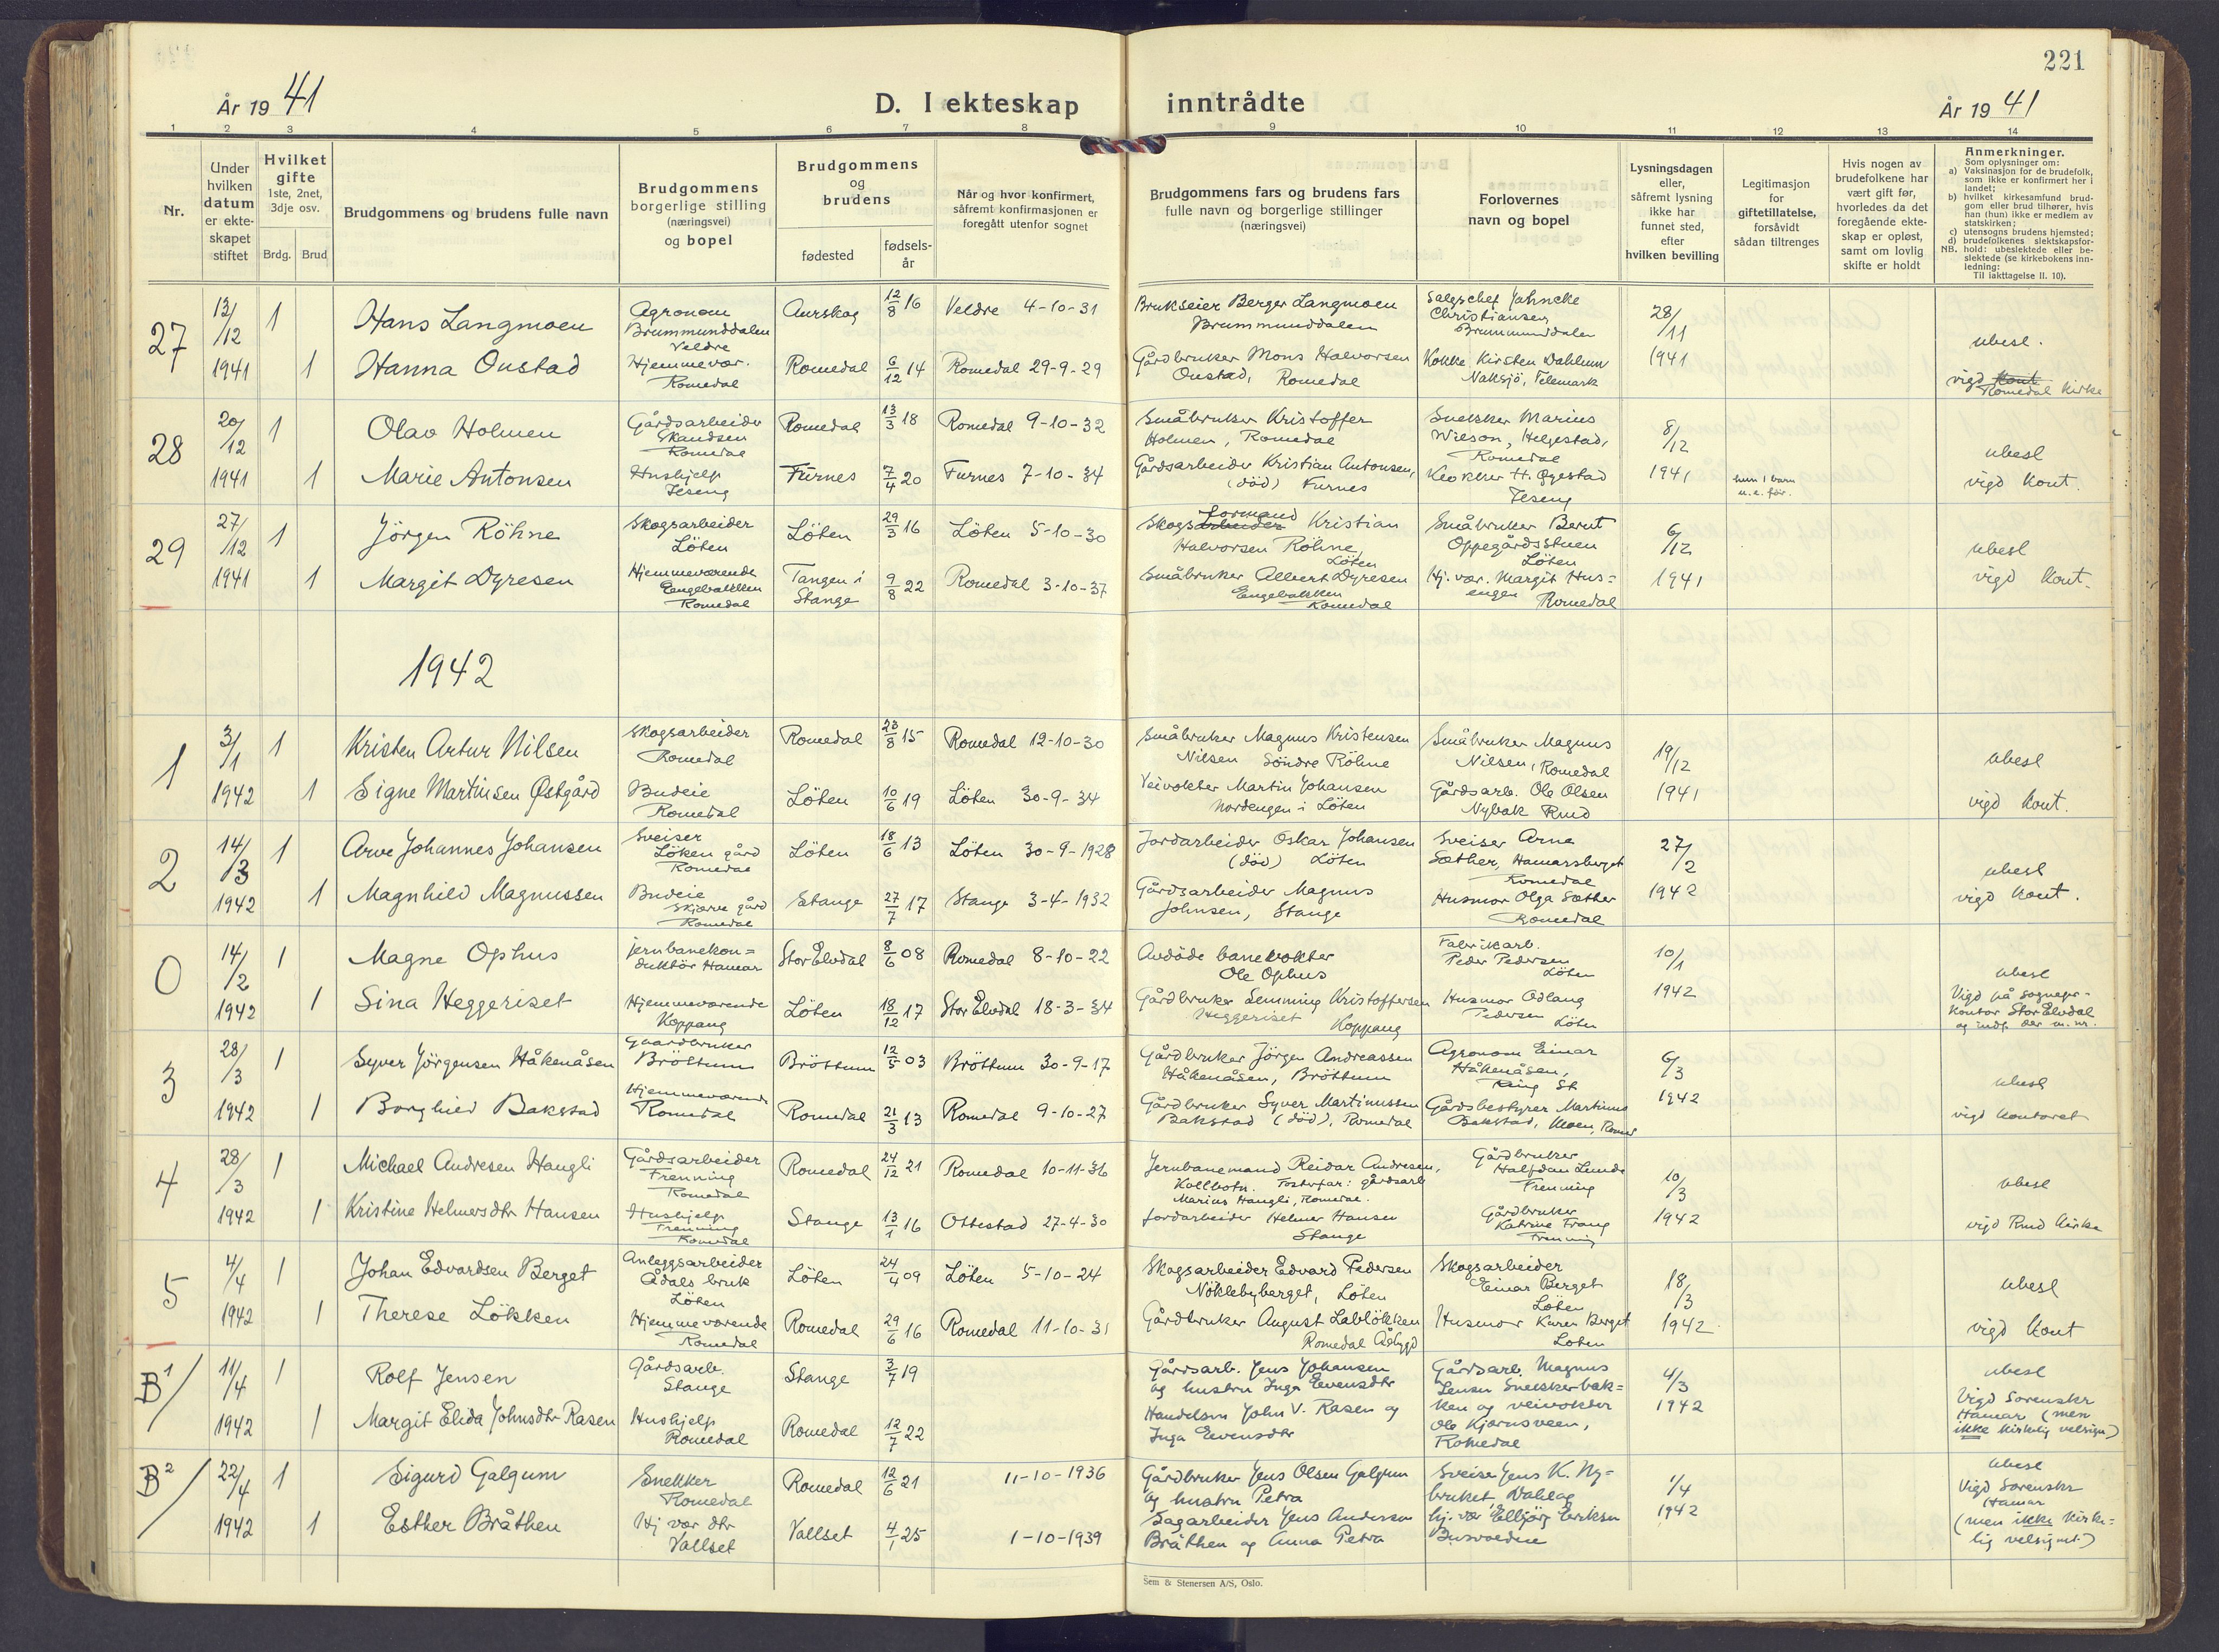 År 19 41
D. I ekteskap inntrådte
221
År 19 41
1 2 3 4 5 6 7 8 9 10 11 12 13 14
Nr.
Under hvilken datum er ekte-skapet stiftet
Hvilket gifte 1ste, 2net, 3dje osv.
Brdg. Brud
Brudgommens og brudens fulle navn
Brudgommens borgerlige stilling (næringsvei) og bopel
Brudgommens og brudens
fødested
fødsels-år
Når og hvor konfirmert, såfremt konfirmasjonen er foregått utenfor sognet
Brudgommens fars og brudens fars fulle navn og borgerlige stillinger (næringsvei)
Forlovernes navn og bopel
Lysningsdagen eller, såfremt lysning ikke har funnet sted, efter hvilken bevilling
Legitimasjon for giftetillatelse, forsåvidt sådan tiltrenges
Hvis nogen av brudefolkene har vært gift før, hvorledes da det foregående ekte-skap er opløst, samt om lovlig skifte er holdt
Anmerkninger.
Som oplysninger om:
a) Vaksinasjon for de brudefolk, som ikke er konfirmert her i landet;
b) hvilket kirkesamfund brud-gom eller brud tilhører, hvis han (hun) ikke er medlem av statskirken;
c) utensogns brudens hjemsted;
d) brudefolkenes slektskapsfor-hold: ubeslektede eller be-slektede (se kirkebokens inn-ledning:
NB. Til iakttagelse II. 10).
27 13/12 1941 1 Hans Langmoen Agronom Brummunddalen Veldre Aurskog 12/8 16 Veldre 4-10-31 Brukseier Berger Langmoen Brummunddalen Salgschef Jahncke Christiansen Brummunddalen 28/11 1941 ubesl.
1 Hanna Onstad Hjemmevær. Romedal Romedal 6/12 14 Romedal 29-9-29 Gårdbruker Mons Halvorsen Onstad, Romedal Kokke Kirsten Dahlum Naksjö, Telemark vigd Kont Romedal Kirke
28 20/12 1941 1 Olav Holmen Gårdsarbeider Skandsen Romedal Romedal 13/3 18 Romedal 9-10-32 Småbruker Kristoffer Holmen, Romedal Snekker Marius Wilson, Helgestad, Romedal 8/12 1941 ubesl
1 Marie Antonsen Hushjelp Jeseng Furnes 7/4 20 Furnes 7-10-34 Gårdsarbeider Kristian Antonsen, (död) Furnes H. Øgestad Jeseng hun 1 barn u.e. før. vigd Kont.
29 27/12 1941 1 Jörgen Röhne Skogsarbeider Löten Löten 29/3 16 Löten 5-10-30 Skogsarbeider formand Kristian Halvorsen Röhne, Löten Småbruker Bernt Oppegårdsstuen Löten 6/12 1941 ubesl
1 Margit Dyresen Hjemmeværende Engebakken Romedal Tangen i Stange 9/8 22 Romedal 3-10-37 Småbruker Albert Dyresen Engebakken Romedal Hj. vær. Margit Hus=engen Romedal vigd Kont.
1942
1 3/1 1942 1 Kristen Artur Nilsen Skogsarbeider Romedal Romedal 23/8 15 Romedal 12-10-30 Småbruker Magnus Kristensen Nilsen Söndre Röhne Småbruker Magnus Nilsen, Romedal 19/12 1941 ubesl
1 Signe Martinsen Østgård Budeie Romedal Löten 10/6 19 Löten 30-9-34 Veivokter Martin Johansen Nordengen i Löten Gårdsarb. Ole Olsen Nybak Rud vigd Kont.
2 14/3 1942 1 Arve Johannes Johansen Sveiser Löken gård Romedal Löten 18/6 13 Löten 30-9-1928 Jordarbeider Oskar Johansen (död) Löten Sveiser Arne Sæther, Hamarsberget Romedal 27/2 1942 ubesl
1 Magnhild Magnussen Budeie Skjærve gård Romedal Stange 27/7 17 Stange 3-4-1932 Gårdsarbeider Magnus Johnsen, Stange Husmor Olga Sæther Romedal vigd Kont.
0 14/2 1942 1 Magne Ophus jernbanekon=duktör Hamar Stor Elvdal 8/6 08 Romedal 8-10-22 Avdöde banevokter Ole Ophus Fabrikarb. Peder Pedersen Löten 10/1 1942 ubesl
1 Sina Heggeriset Hjemmeværende Koppang Löten 18/12 17 Stor Elvdal 18-3-34 Gårdbruker Lemming Kristoffersen Heggeriset Koppang Husmor Odlaug Pedersen Löten Vigd på sognepr-kontor Stor Elvdal og indf. der m. nr.
3 28/3 1942 1 Syver Jörgensen Håkenåsen Gaardbruker Bröttum Bröttum 12/5 03 Bröttum 30-9-17 Gårdbruker Jörgen Andreassen Håkenåsen, Bröttum Agronom Einar Håkenåsen, Ring St 6/3 1942 ubesl
1 Borghild Bakstad Hjemmeværende Romedal Romedal 21/3 13 Romedal 9-10-27 Gårdbruker Syver Martinussen Bakstad (död), Romedal Gårdsbestyrer Martinus Bakstad, Moen, Romed vigd kontoret
4 28/3 1942 1 Michael Andresen Haugli Gårdsarbeider Frenning Romedal Romedal 24/12 21 Romedal 10-11-36 Jernbanemand Reidar Andresen, Kolbotn. Fosterfar: gårdsarb Marius Haugli, Romedal. Gårdbruker Halfdan Lunde Frenning 10/3 1942 ubesl
1 Kristine Helmersdtr Hansen Hushjelp Frenning Romedal Stange 13/1 16 Ottestad 27-4-30 Jordarbeider Helmer Hansen Stange Gårdbruker Katrine Frang Frenning vigd Rud Kirke
5 4/4 1942 1 Johan Edvardsen Berget Anleggsarbeider Ådals bruk Löten Löten 24/4 09 Löten 5-10-24 Skogsarbeider Edvard Pedersen Nöklebyberget, Löten Skogsarbeider Einar Berget Löten 18/3 1942 ubesl
1 Therese Lökken Hjemmeværende Romedal Romedal 29/6 16 Romedal 11-10-31 Gårdbruker August Lablökken Romedal Åsbygd Husmor Karen Berget Löten vigd Kont
B1 11/4 1942 1 Rolf Jensen Gårdsarb. Stange Stange 3/7 19 Gårdsarb. Jens Johansen og hustru Inga Evensdtr Gårdsarb. Magnus Jensen Snekkerbak=ken og veivokter Ole Kjernsveen, Romedal 4/3 1942 ubesl
1 Margit Elida Johnsdtr Rasen Hushjelp Romedal Romedal 12/7 22 Handelsm John V. Rasen og Inga Evensdtr Vigd Sorenskr Hamar (men ikke kirkelig velsign)
B2 22/4 1942 1 Sigurd Galgum Snekker Romedal Romedal 12/6 21 11-10-1936 Gårdbruker Jens Olsen Galgum og hustru Petra Sveiser Jens K. Ny=bruket, Vallset 1/4 1942 ubesl
1 Esther Bråthen Hj vær dtr Vallset Vallset 4/1 25 1-10-1939 Sagarbeider Jens Andersen Bråthen og Anna Petra hj. vær Eriksen Vigd Sorenskr Hamar (men ikke kirke=lig velsignet)
Sem & Stenersen A/S, Oslo.